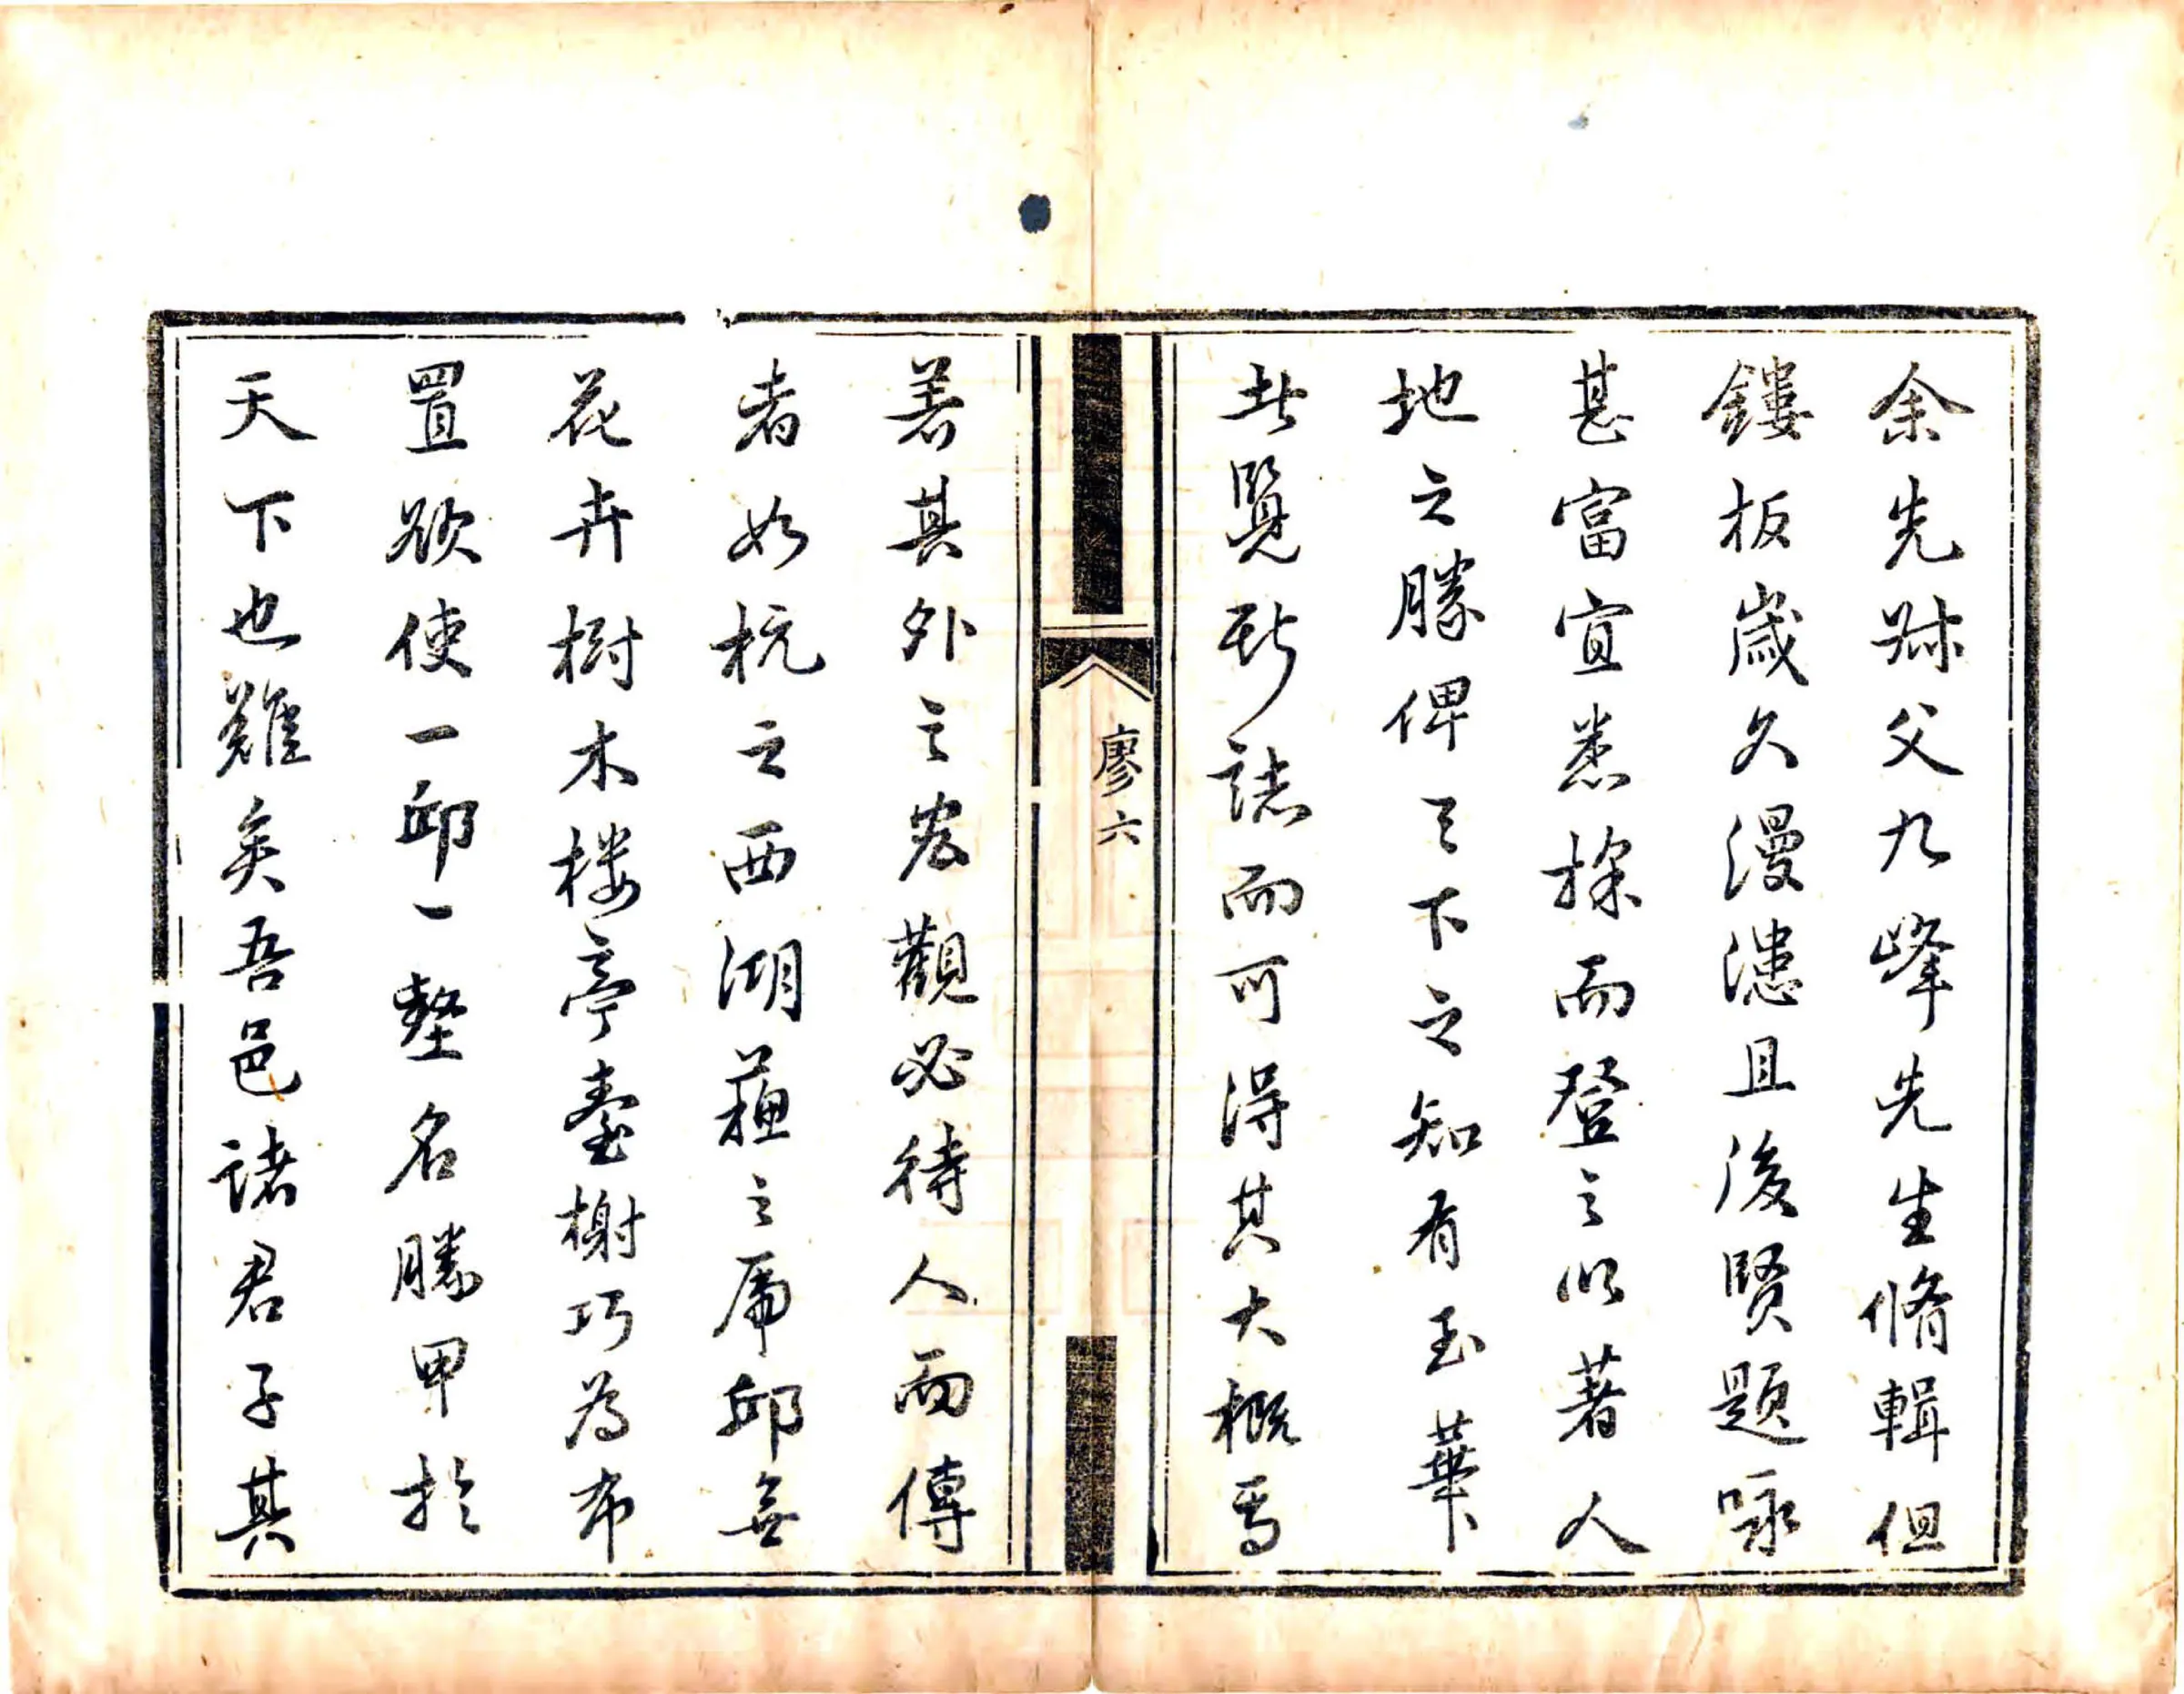 余先叔父九峰先生脩輯但
鏤板歲久漫漶且後賢題咏
甚富宜悉採而登之以著人
地之勝俾天下之知有玉華
此覽斯誌而可得其大概焉
廖六
若其外之宏觀必待人而傳
者如杭之西湖蘓之虎邱無
花卉樹木樓亭臺榭巧為布
置欲使一邱一壑名勝甲於
天下也難矣吾邑諸君子其